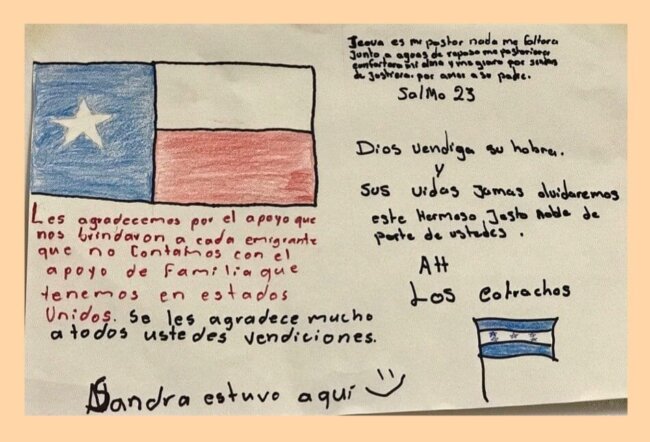 Les agradecemos por el apoyo que
nos brindaron a cada emigrante
que no contamos con el
apoyo de familia que
tenemos en estados
Unidos. Se les agradece mucho
a todos ustedes vendiciones.
Sandra estuvo aquí
Jeova es mi pastor nada me faltara
Junto a aguas de reposo me pastoriara
confortara mi alma y me giara por sendas
de Justicia. por amor a su padre.
Salmo 23
Dios vendiga su hobra.
y
sus vidas Jamas olvidaremos
este Hermoso Jesto Noble de
parte de ustedes.
Att
Los catrachos